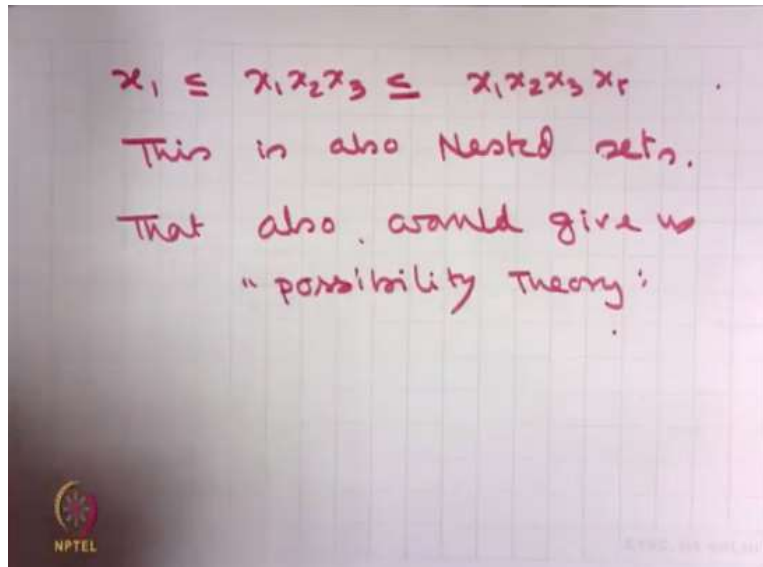 x₁ ≤ x₁x₂x₃ ≤ x₁x₂x₃x₅
This is also Nested sets.
That also would give us
"possibility Theory"
NPTEL